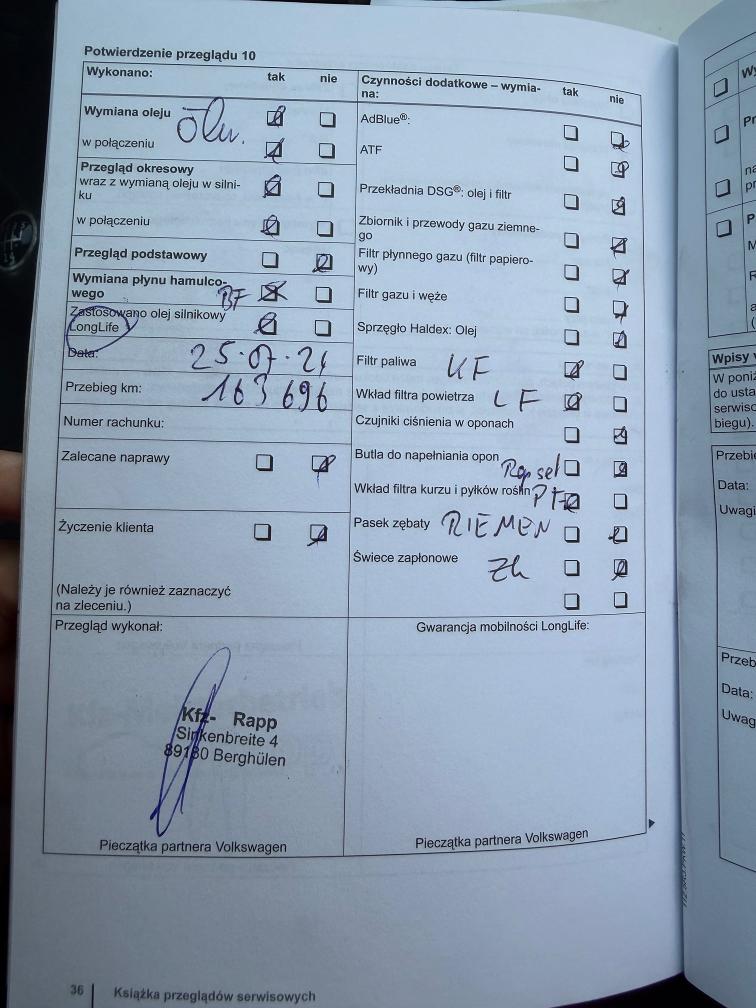 Potwierdzenie przeglądu 10
Wykonano: tak nie
Wymiana oleju
w połączeniu
Przegląd okresowy
wraz z wymianą oleju w silni-
ku
w połączeniu
Przegląd podstawowy
Wymiana płynu hamulco-
wego BF
Zastosowano olej silnikowy
LongLife
Data: 25.07.21
Przebieg km: 163 696
Numer rachunku:
Zalecane naprawy
Życzenie klienta
(Należy je również zaznaczyć
na zleceniu.)
Czynności dodatkowe – wymia-
na: tak nie
AdBlue®:
ATF
Przekładnia DSG®: olej i filtr
Zbiornik i przewody gazu ziemne-
go
Filtr płynnego gazu (filtr papiero-
wy)
Filtr gazu i węże
Sprzęgło Haldex: Olej
Filtr paliwa KF
Wkład filtra powietrza LF
Czujniki ciśnienia w oponach
Butla do napełniania opon
Wkład filtra kurzu i pyłków roślin
Pasek zębaty RIEMEN
Świece zapłonowe
Przegląd wykonał:
Kfz- Rapp
Sinkenbreite 4
89180 Berghülen
Pieczątka partnera Volkswagen
Gwarancja mobilności LongLife:
Pieczątka partnera Volkswagen
36 Książka przeglądów serwisowych
Wpisy
W poniż
do usta
serwiso
biegu).
Przebie
Data:
Uwagi
Przeb
Data:
Uwag